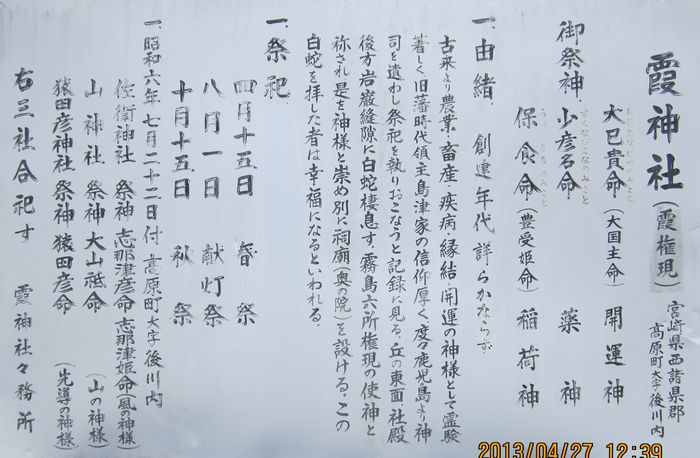 霞神社(霞権現)
宮崎県西諸県郡
高原町大字後川内
御祭神
大巳貴命(大国主命) 開運神
少彦名命 薬神
保食命(豊受姫命) 稲荷神
一、由緒、 創建年代詳らかならず
古来より農業・畜産・疾病・縁結・開運の神様として霊験
著しく旧藩時代領主島津家の信仰厚く、度々鹿児島より神
司を遣わし祭祀を執りおこなうと記録に見る。丘の東面、社殿
後方岩巌縫隙に白蛇棲息す。霧島六所権現の使神と
祢され是を神様と崇め別に祠廟(奥の院)を設ける。この
白蛇を拝した者は幸福になるといわれる。
一、祭祀、
四月十五日 春祭
八月一日 献灯祭
十月十五日 秋祭
一、昭和六年七月二十二日付 高原町大字後川内
佐衛神社 祭神 志那津彦命 志那津姫命(風の神様)
山神社 祭神 大山祗命 (山の神様)
猿田彦神社 祭神 猿田彦命 (先導の神様)
右三社合祀す 霞神社々務所
2013/04/27 12:39